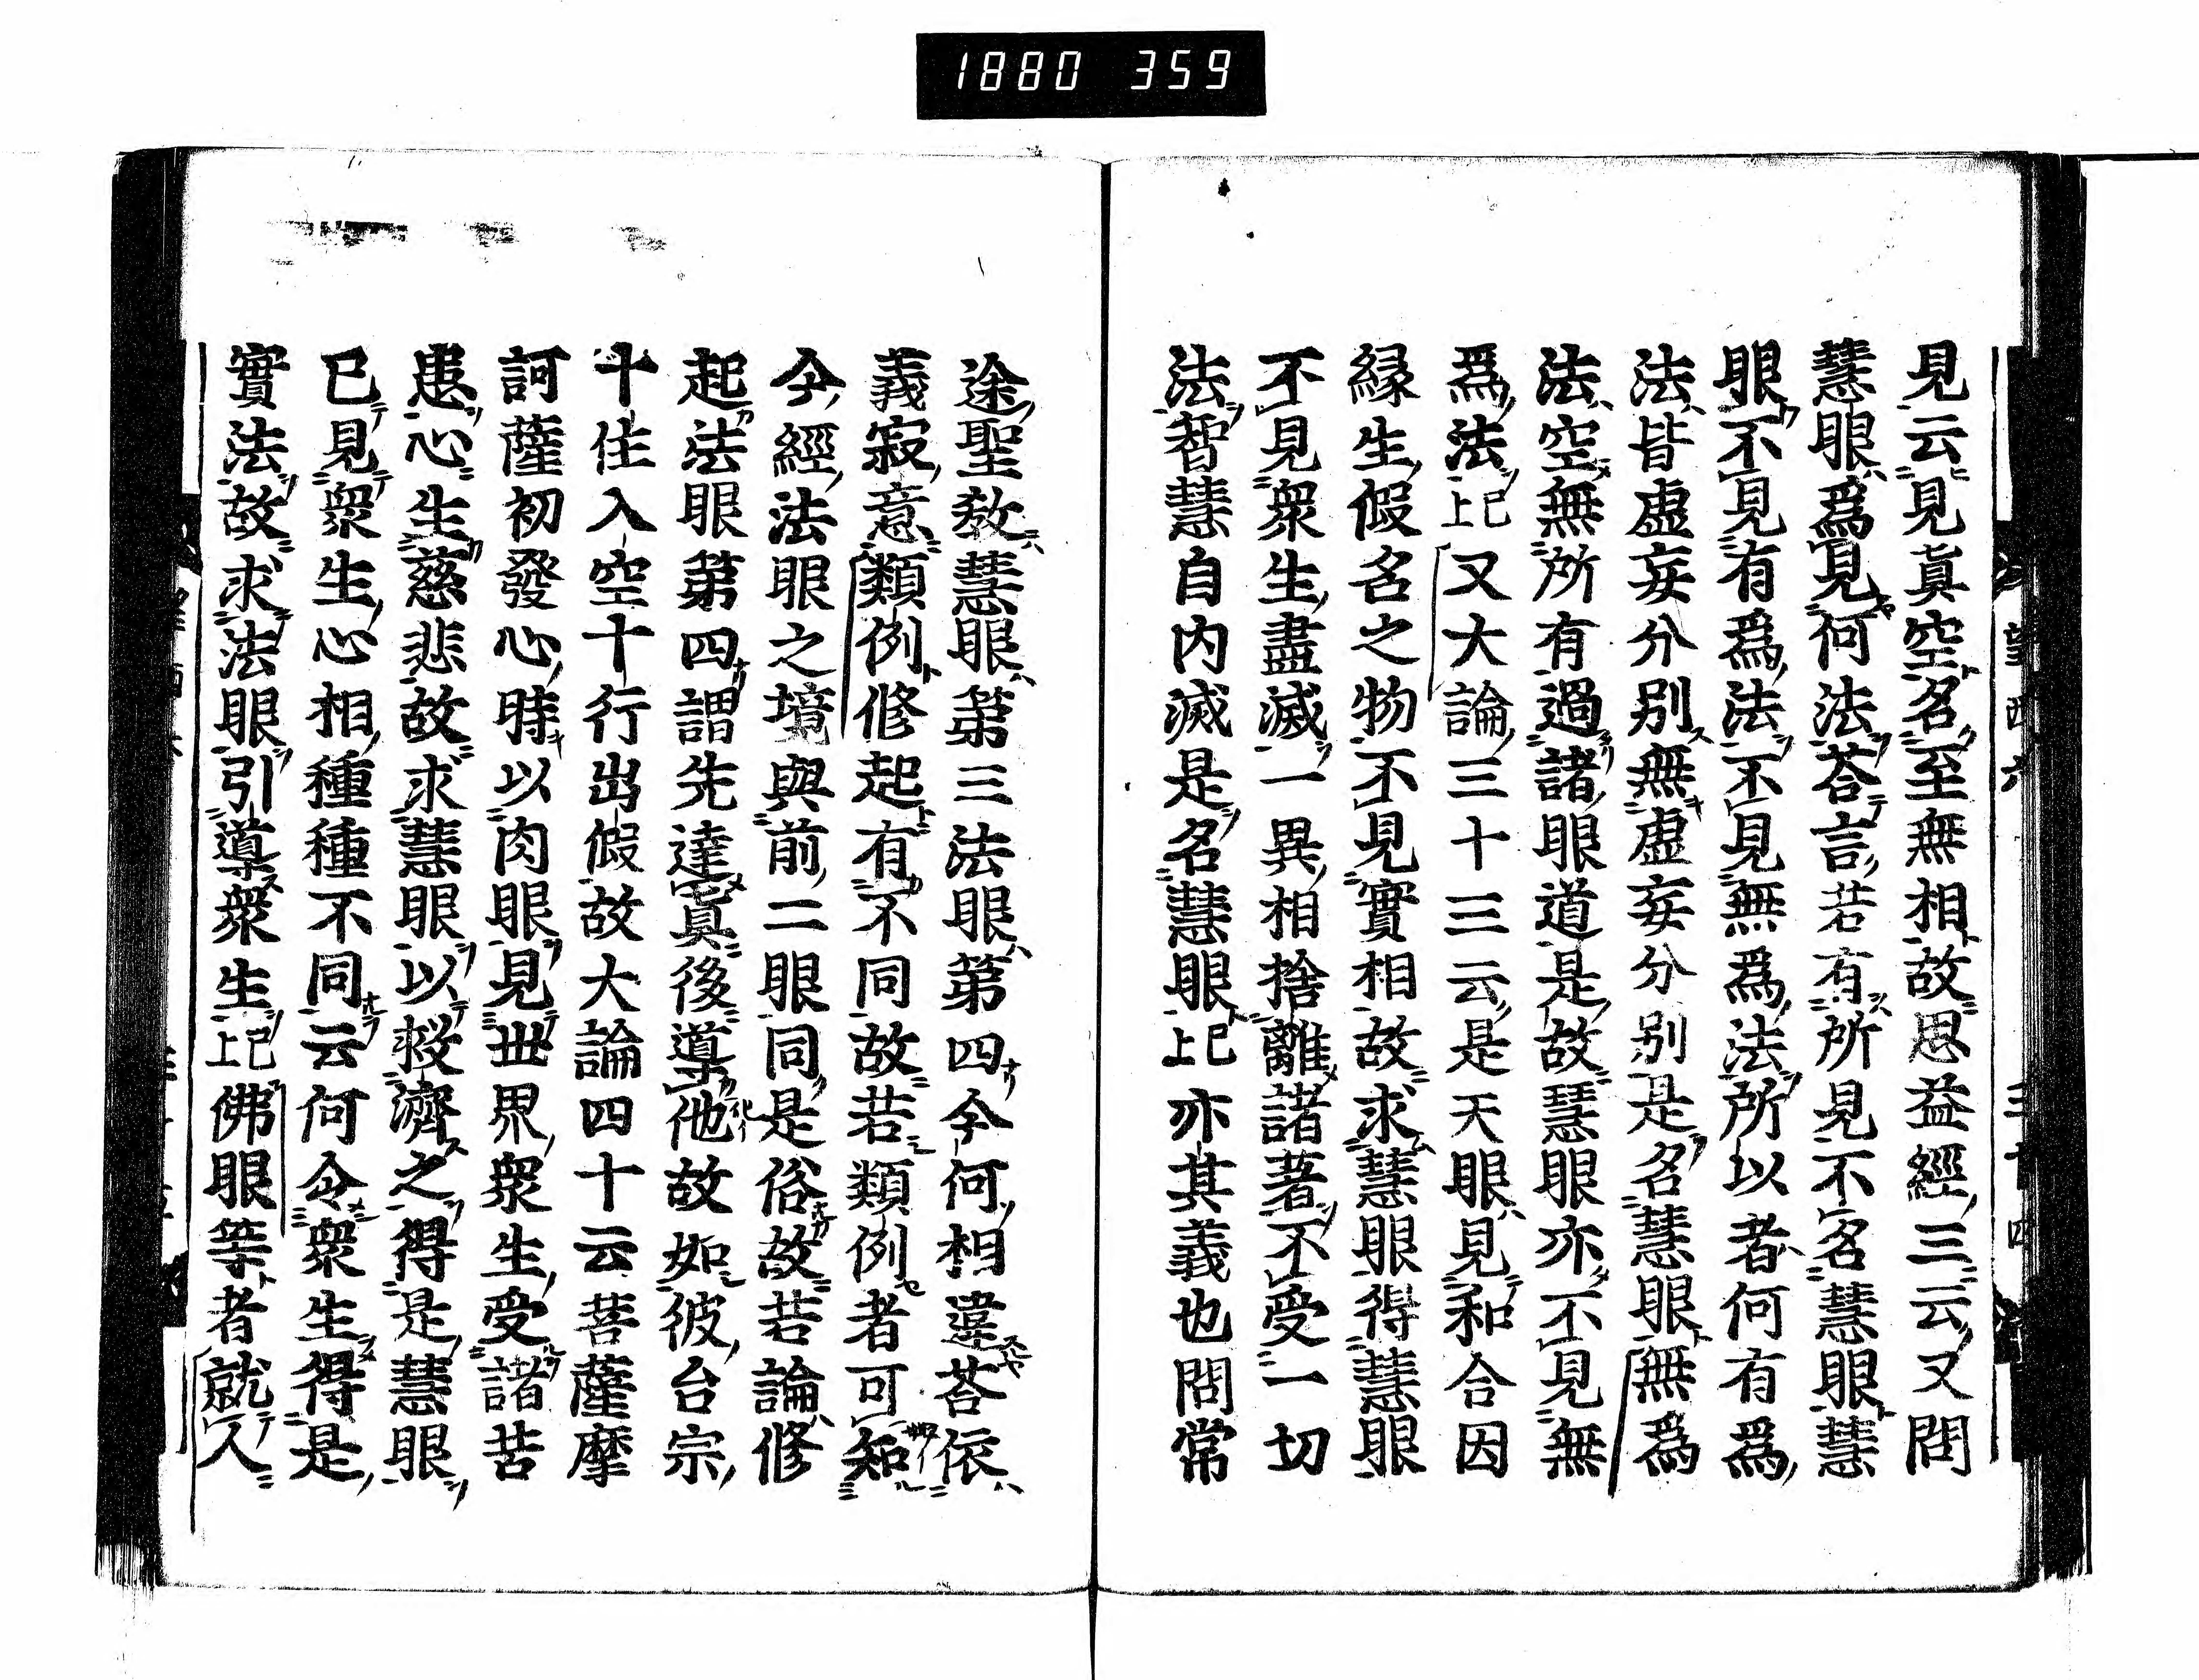 1880 359
見云見眞空名至無相故思益經三云又問
慧眼爲見何法荅言若有所見不名慧眼慧
眼不見有爲法不見無爲法所以者何有爲
法皆虛妄分別無虛妄分別是名慧眼無爲
法空無所有過諸眼道是故慧眼亦不見無
爲法已上又大論三十三云是天眼見和合因
緣生假名之物不見實相故求慧眼得慧眼
不見衆生盡滅一異相捨離諸著不受一切
法智慧自內滅是名慧眼已上亦其義也問常
途聖教慧眼第三法眼第四今何相違荅依
義寂意類例修起有不同故若類例者可知
今經法眼之境與前二眼同是俗故若論修
起法眼第四謂先達眞後導他故如彼台宗
十住入空十行出假故大論四十云菩薩摩
訶薩初發心時以肉眼見世界衆生受諸苦
患心生慈悲故求慧眼以救濟之得是慧眼
已見衆生心相種種不同云何令衆生得是
實法故求法眼引導衆生已上佛眼等者就人